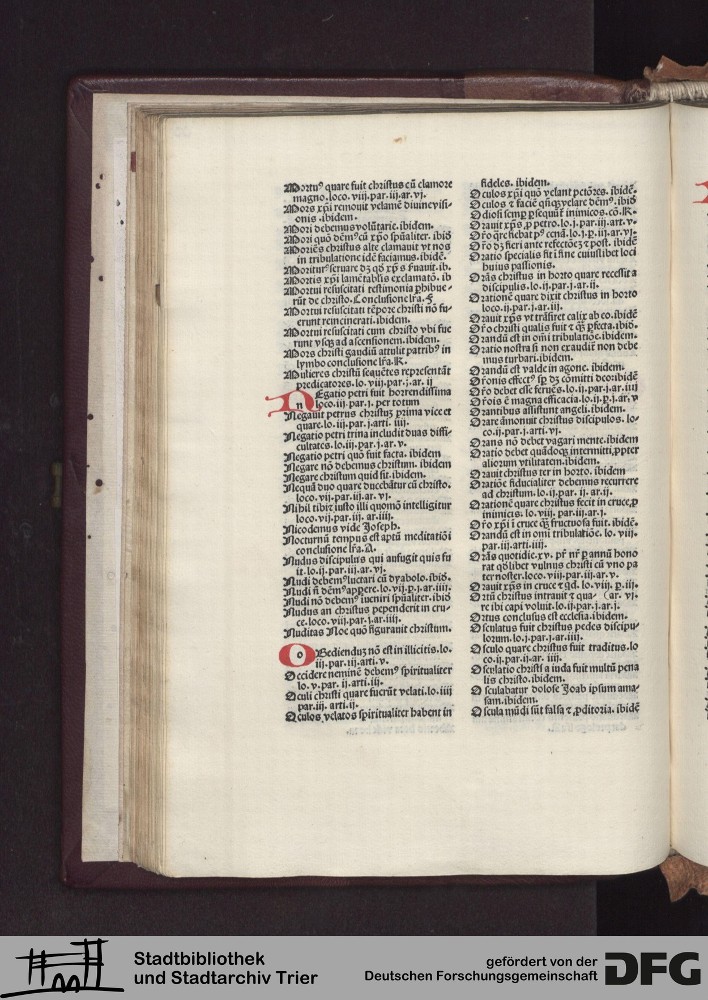 Mortuꝰ quare fuit christus cū clamore
magno.loco.viij.par.iij.ar.vj.
Mors xp̄i remouit velamē diuine visi-
onis .ibidem.
Mori debemus volūtarie.ibidem.
Mori quō dēmꝰ cū xp̄o spūaliter.ibid̄
Moriēs christus alte clamauit vt nos
in tribulatione idē faciamus.ibidē.
Moritur⁹ seruare dꝫ qd̄ xp̄s
Mortis xp̄i lamētabilis exclamatō.ib
Mortui resuscitati testimonia ꝑhibue-
rūt de christo.Conclusione lr̄a.
Mortui resuscitati tēpore christi nō fu-
erunt reincinerati.ibidem.
Mortui resuscitati cum christo vbi fue
runt vsqꝫ ad ascensionem.ibidem.
Mors christi gaudiū attulit patribꝰ in
lymbo conclusione lr̄a.K.
Mulieres christū sequētes representāt
predicatores.lo.viij.par.j.ar.ij
NEgatio petri fuit horrendissima
n loco.iij.par.j.per totum
Negauit petrus christuꝫ prima vice et
quare.lo.iij.par.j.arti.iiij.
Negatio petri trina includit duas diffi-
cultates.lo.iij.par.j.ar.v.
Negatio petri quō fuit facta.ibidem
Negare nō debemus christum.ibidem
Negare christum quid sit.ibidem.
Nequā duo quare ducebātur cū christo.
loco.vij.par.iij.ar.vj.
Nihil tibi et iusto illi quomō intelligitur
loco.vij.par.iij.ar.iiij.
Nicodemus vide Joseph.
Nocturnū tempus est aptū meditatiōi
conclusione lr̄a.A.
Nudus discipulus qui aufugit quis fu
it.lo.ij.par.iij.ar.vj.
Nudi debemꝰ luctari cū dyabolo.ibid̄.
Nudi n̄ dēmꝰ apꝑere.lo.vij.p.j.ar.iiij.
Nudi nō debemꝰ inueniri spūaliter.ibid̄
Nudus an christus pependerit in cru-
ce.loco.viij.par.j.ar.iij.
Nuditas Noe quō figurauit christum.
OBedienduꝫ nō est in illicitis.lo.
iij.par.iij.arti.v.
Occidere neminē debemꝰ spiritualiter
lo.v.par.ij.arti.iij.
Oculi christi quare fuerūt velati.lo.iiij
par.iij.arti.ij.
Oculos velatos spiritualiter habent in
fideles.ibidem.
Oculos xp̄i quō velant pctōres.ibidē.
Oculos ⁊ faciē velare dēmꝰ.ibid̄
Odiosi semꝑ ꝑsequūt᷑ inimicos.cō.K.
Orauit xp̄s ꝓ petro.lo.j.par.iij.art.v.
Or̄o qr̄e fiebat pꝰ cenā.lo.j.p.iij.ar.vj.
Or̄o dꝫ fieri ante refectōeꝫ ⁊ post.ibidē
Oratio specialis fit ī fine cuiuslibet loci
huius passionis.
Orās christus in horto quare recessit a
discipulis.lo.ij.par.j.ar.ij.
Orationē quare dixit christus in horto
loco.ij.par.j.ar.iij.
Orauit xp̄s vt trāsiret calix ab eo.ibidē
Or̄o christi qualis fuit ⁊ ꝙ̄ ꝑfecta.ibid̄.
Orandū est in om̄i tribulatiōe.ibidem.
Oratio nostra si non exaudit᷑ non debe
mus turbari.ibidem.
Orandū est valde in agone.ibidem.
Or̄onis effectꝰ sp̄ dꝫ cōmitti deo:ibidē
Or̄o debet esse feruēs.lo.ij.par.j.ar.iiij
Or̄ois ē magna efficacia.lo.ij.p.j.ar.v
Orantibus assistunt angeli.ibidem.
Orare āmonuit christus discipulos.lo-
co.ij.par.j.arti.vj.
Orans nō debet vagari mente.ibidem
Oratio debet quādoqꝫ intermitti,ꝓpter
aliorum vtilitatem.ibidem.
Orauit christus ter in horto.ibidem
Oratiōe fiducialiter debemus recurrere
ad christum.lo.ij.par.ij.ar.ij.
Orationē quare christus fecit in cruce,ꝓ
inimicis.lo.viij.par.iij.ar.j.
Or̄o xp̄i ī cruce ꝙ̄ fructuosa fuit.ibidē.
Orandū est in omi tribulatiōe.lo.viij.
par.iij.arti.iiij.
Orās quotidie.xv.pr̄ nr̄ ꝑ annū hono
rat qd̄libet vulnus christi cū vno pa
ter noster.loco.viij.par.iij.ar.v.
Orauit xp̄s in cruce ⁊ qd̄.lo.viij.p.iij.
Ortū christus intrauit ⁊ qua- (ar.vj.
re ibi capi voluit.lo.ij.par.j.ar.j.
Ortus conclusus est ecclesia.ibidem.
Osculatus fuit christus pedes discipu-
lorum.lo.j.par.j.ar.iiij.
Osculo quare christus fuit traditus.lo
co.ij.par.ij.ar.iiij.
Osculatio christi a iuda fuit multū pena
lis christo.ibidem.
Osculabatur dolose Joab ipsum ama-
sam.ibidem.
Oscula mūdi sūt falsa ⁊ ꝓditoria.ibidē
Stadtbibliothek
und Stadtarchiv Trier
gefördert von der
Deutschen Forschungsgemeinschaft
DFG